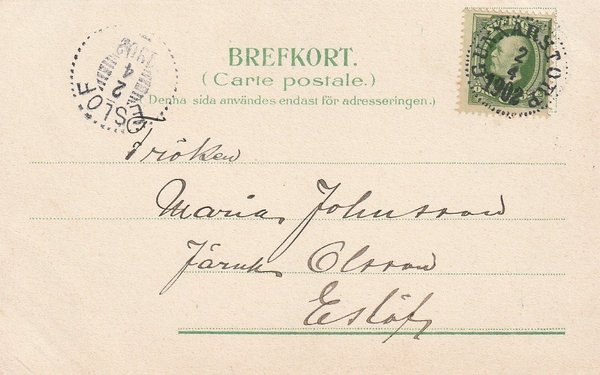 BREFKORT.
(Carte postale.)
(Denna sida användes endast för adresseringen.)
SVERIGE
2
4
1902
ESLÖF
2
4
1902
Fröken
Maria Johnsson
Järnh. Olsson
Eslöf